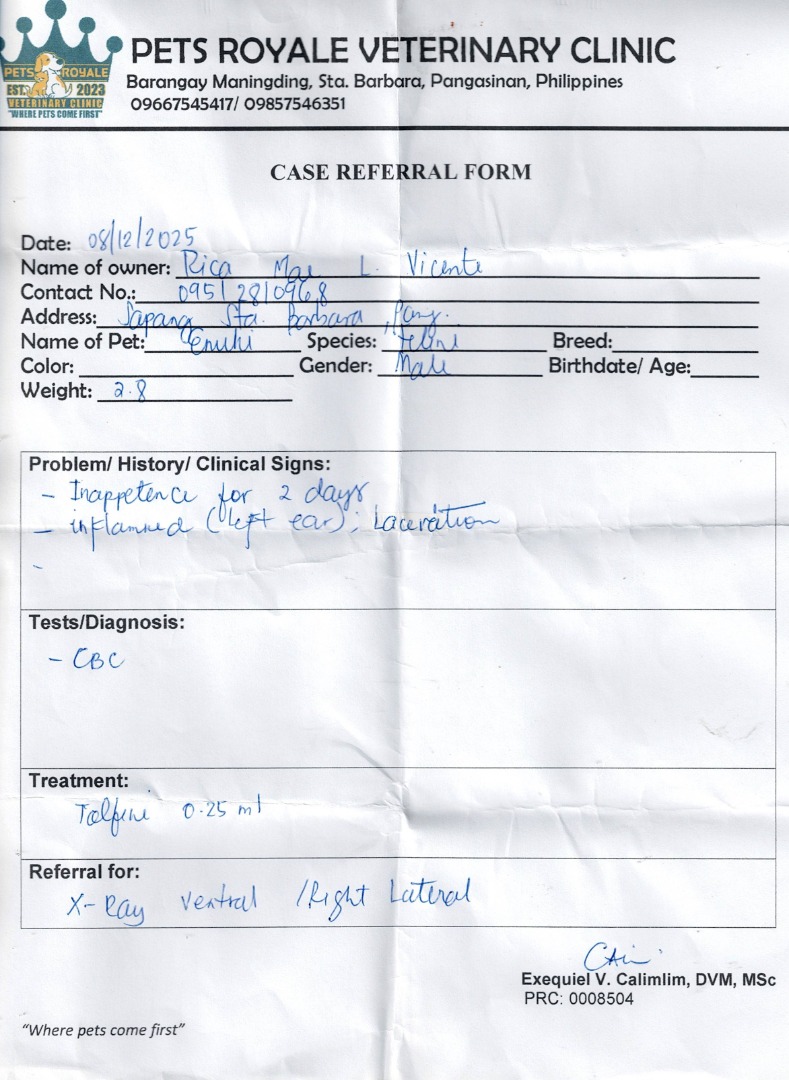 PETS ROYALE
EST. 2023
VETERINARY CLINIC
"WHERE PETS COME FIRST"
PETS ROYALE VETERINARY CLINIC
Barangay Maningding, Sta. Barbara, Pangasinan, Philippines
09667545417/ 09857546351
CASE REFERRAL FORM
Date: 08/12/2025
Name of owner: Rica Mae L. Vicente
Contact No.: 09512810968
Address: Sapang Sta. Barbara, Pang.
Name of Pet: Species: Feline Breed:
Color: Gender: Male Birthdate/ Age:
Weight: 2.8
Problem/ History/ Clinical Signs:
- Inappetence for 2 days
- inflamned (left ear); Laceration
-
Tests/Diagnosis:
- CBC
Treatment:
Tolfine 0.25 ml
Referral for:
X-Ray Ventral /Right Lateral
Exequiel V. Calimlim, DVM, MSc
PRC: 0008504
"Where pets come first"